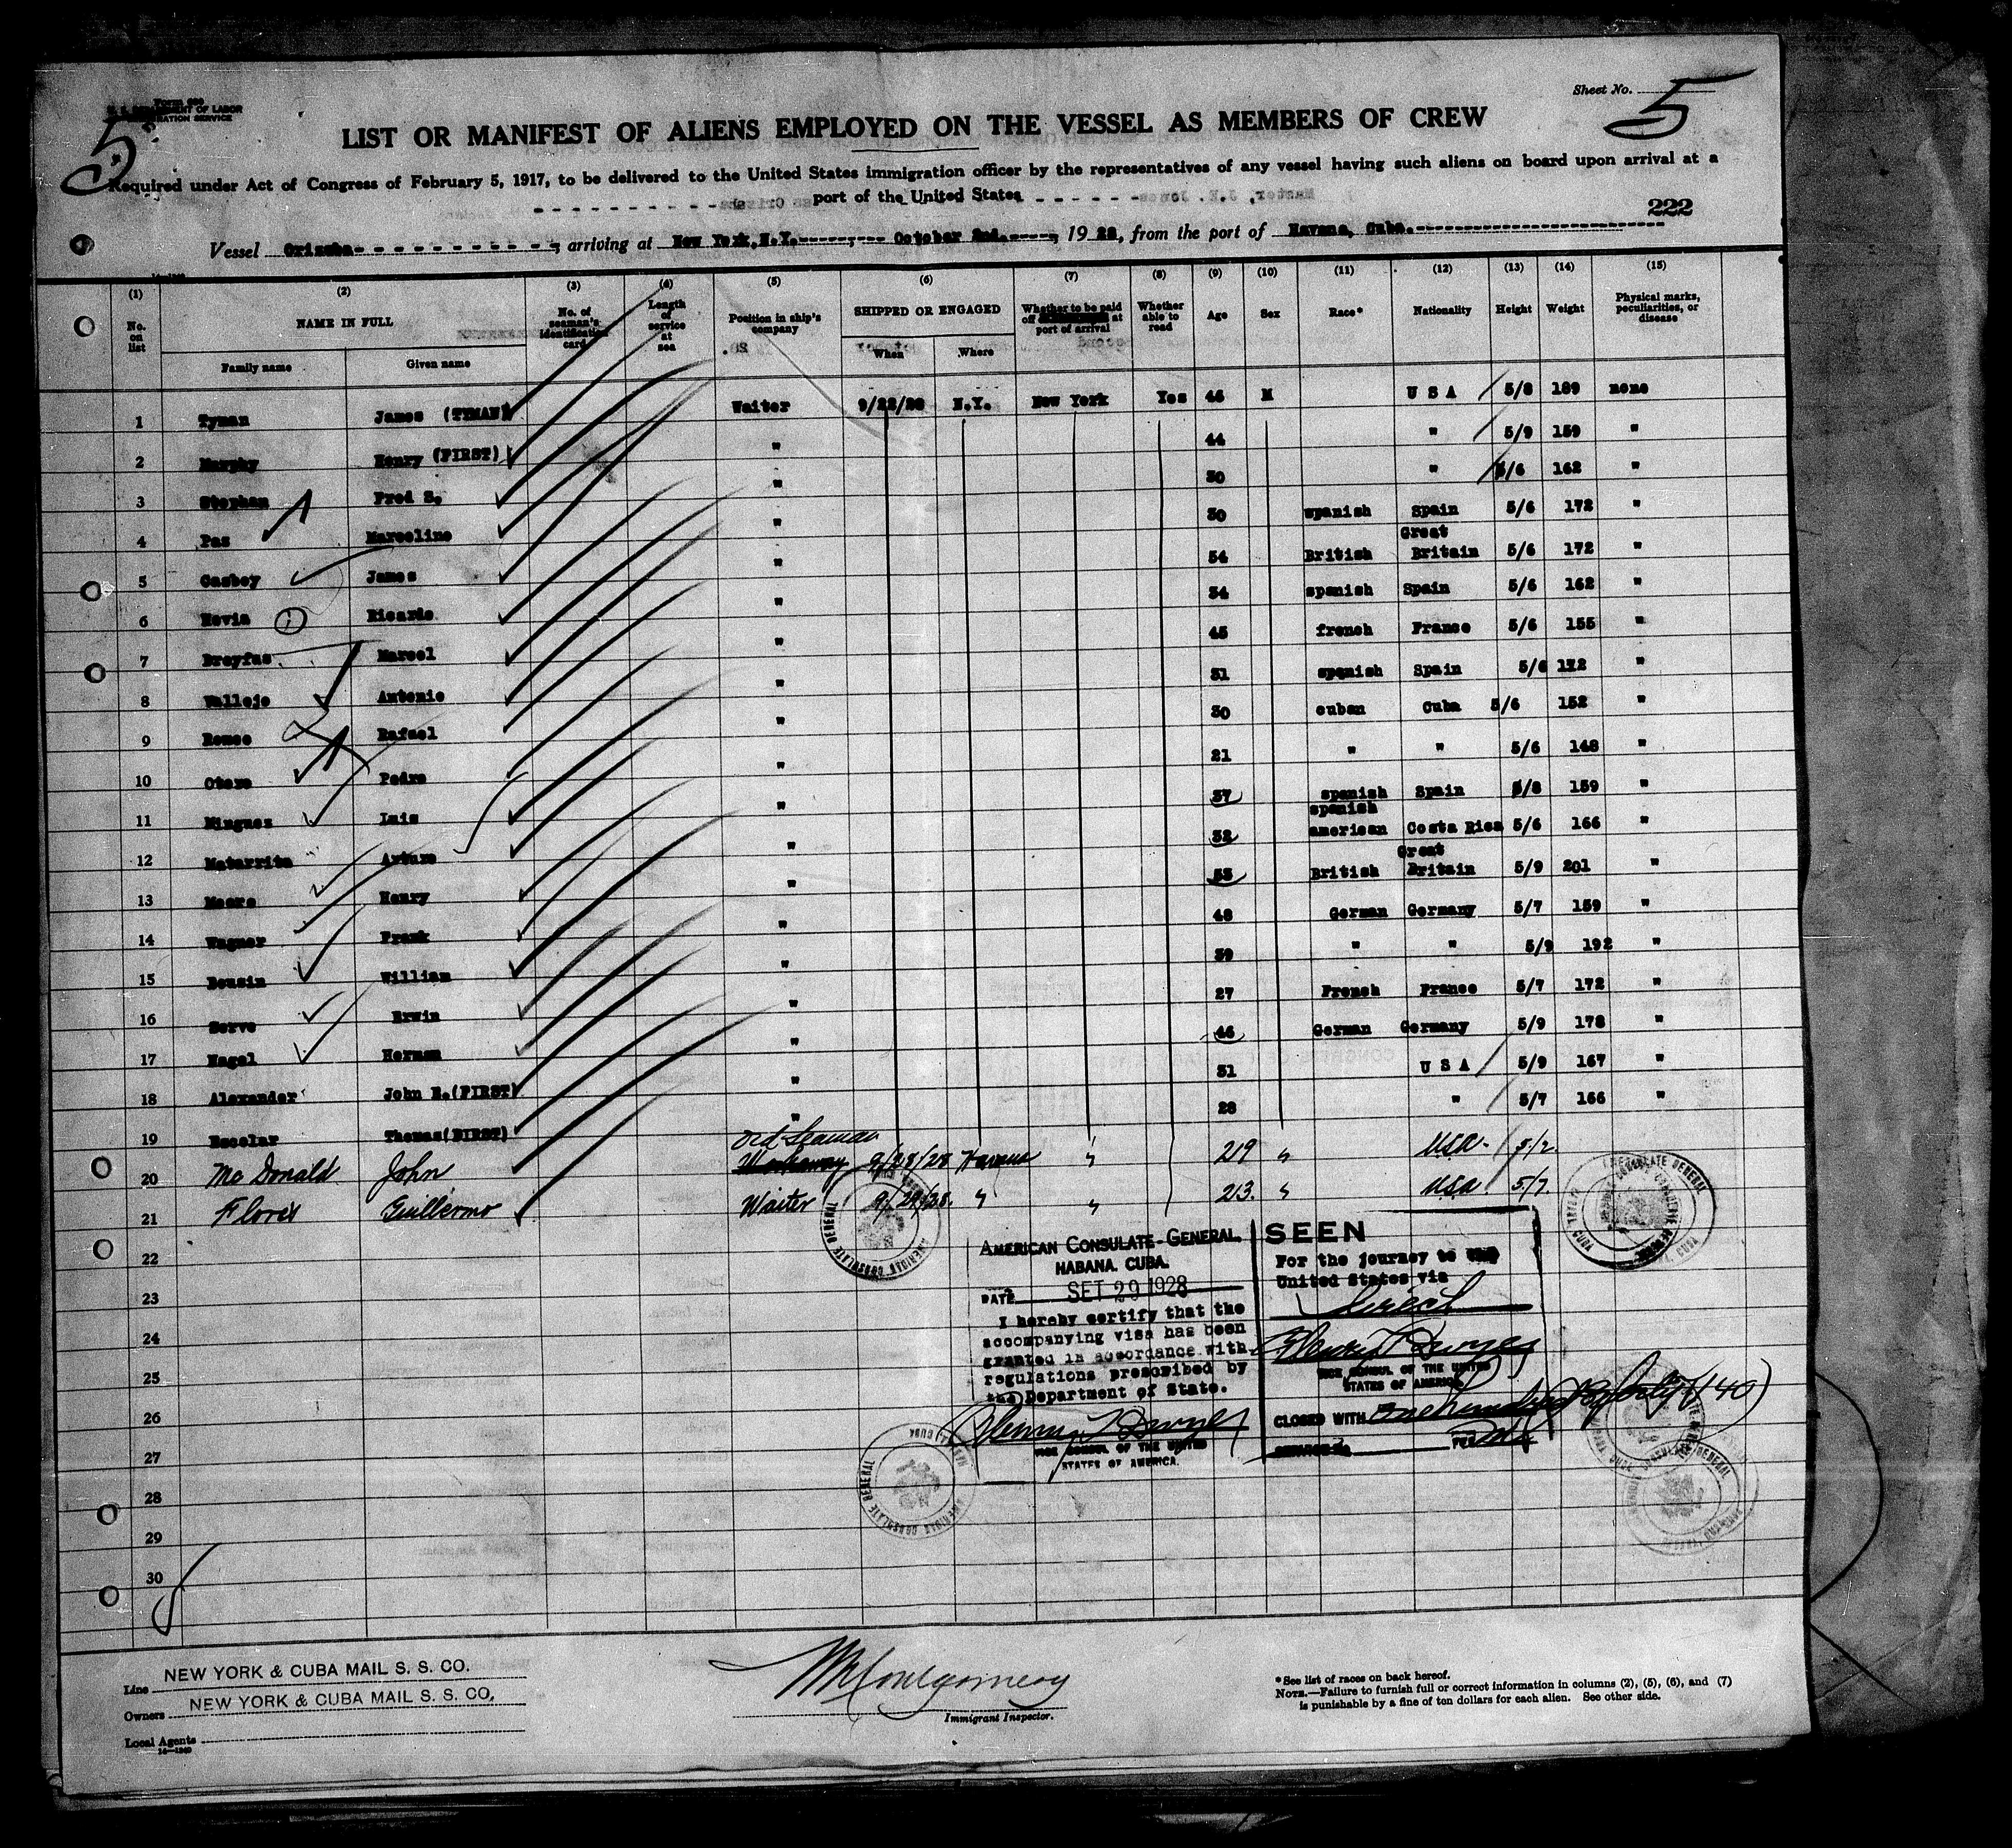 Sheet No. 5
5
Form 680
U. S. DEPARTMENT OF LABOR
IMMIGRATION SERVICE
LIST OR MANIFEST OF ALIENS EMPLOYED ON THE VESSEL AS MEMBERS OF CREW
Required under Act of Congress of February 5, 1917, to be delivered to the United States immigration officer by the representatives of any vessel having such aliens on board upon arrival at a
port of the United States
222
Vessel Orizaba, arriving at New York, N.Y. October 2nd. , 19 28, from the port of Havana, Cuba.
(1) (2) (3) (4) (5) (6) (7) (8) (9) (10) (11) (12) (13) (14) (15)
No. on list NAME IN FULL No. of seaman's identification card Length of service at sea Position in ship's company SHIPPED OR ENGAGED Whether to be paid off at port of arrival Whether able to read Age Sex Race* Nationality Height Weight Physical marks, peculiarities, or disease
Family name Given name When Where
1 Tyman James (TYMAN) Waiter 9/22/28 N.Y. New York Yes 46 M U S A 5/8 189 none
2 Murphy Henry (FIRST) " 44 " 5/9 159 "
3 Stephan Fred S. " 30 " 5/6 162 "
4 Pas Marcelino " 30 spanish Spain 5/6 172 "
5 Casbey James " 54 British Great Britain 5/6 172 "
6 Hevia Ricardo " 34 spanish Spain 5/6 162 "
7 Dreyfus Marcel " 45 french France 5/6 155 "
8 Vallejo Antonio " 31 spanish Spain 5/6 172 "
9 Rafael " 30 cuban Cuba 5/6 152 "
10 Otero Pedro " 21 " " 5/6 148 "
11 Minguez Luis " 37 spanish Spain 5/8 159 "
12 Matarrita Arturo " 32 spanish american Costa Rica 5/6 166 "
13 Moore Henry " 53 British Great Britain 5/9 201 "
14 Wagner Frank " 48 German Germany 5/7 159 "
15 Bousin William " 39 " " 5/9 192 "
16 Serve Erwin " 27 French France 5/7 172 "
17 Nagel Herman " 46 German Germany 5/9 178 "
18 Alexander John E. (FIRST) " 31 U S A 5/9 167 "
19 Escolar Thomas (FIRST) " 28 " 5/7 166 "
20 Mc Donald John Ord Seaman Workaway 9/28/28 Havana " 29 " USA 5/2
21 Flores Guillermo Waiter 9/29/28. " " 23. " USA 5/7.
22
23
24
25
26
27
28
29
30
AMERICAN CONSULATE-GENERAL,
HABANA, CUBA.
DATE SET 29 1928
I hereby certify that the
accompanying visa has been
granted in accordance with
regulations prescribed by
the Department of State.
VICE CONSUL OF THE UNITED
STATES OF AMERICA.
SEEN
For the journey to the
United States via
direct
VICE CONSUL OF THE UNITED
STATES OF AMERICA
CLOSED WITH One hundred & forty (140)
AMERICAN CONSULATE GENERAL
Line NEW YORK & CUBA MAIL S. S. CO.
Owners NEW YORK & CUBA MAIL S. S. CO.
Local Agents
Montgomery
Immigrant Inspector.
*See list of races on back hereof.
NOTE.—Failure to furnish full or correct information in columns (2), (5), (6), and (7)
is punishable by a fine of ten dollars for each alien. See other side.